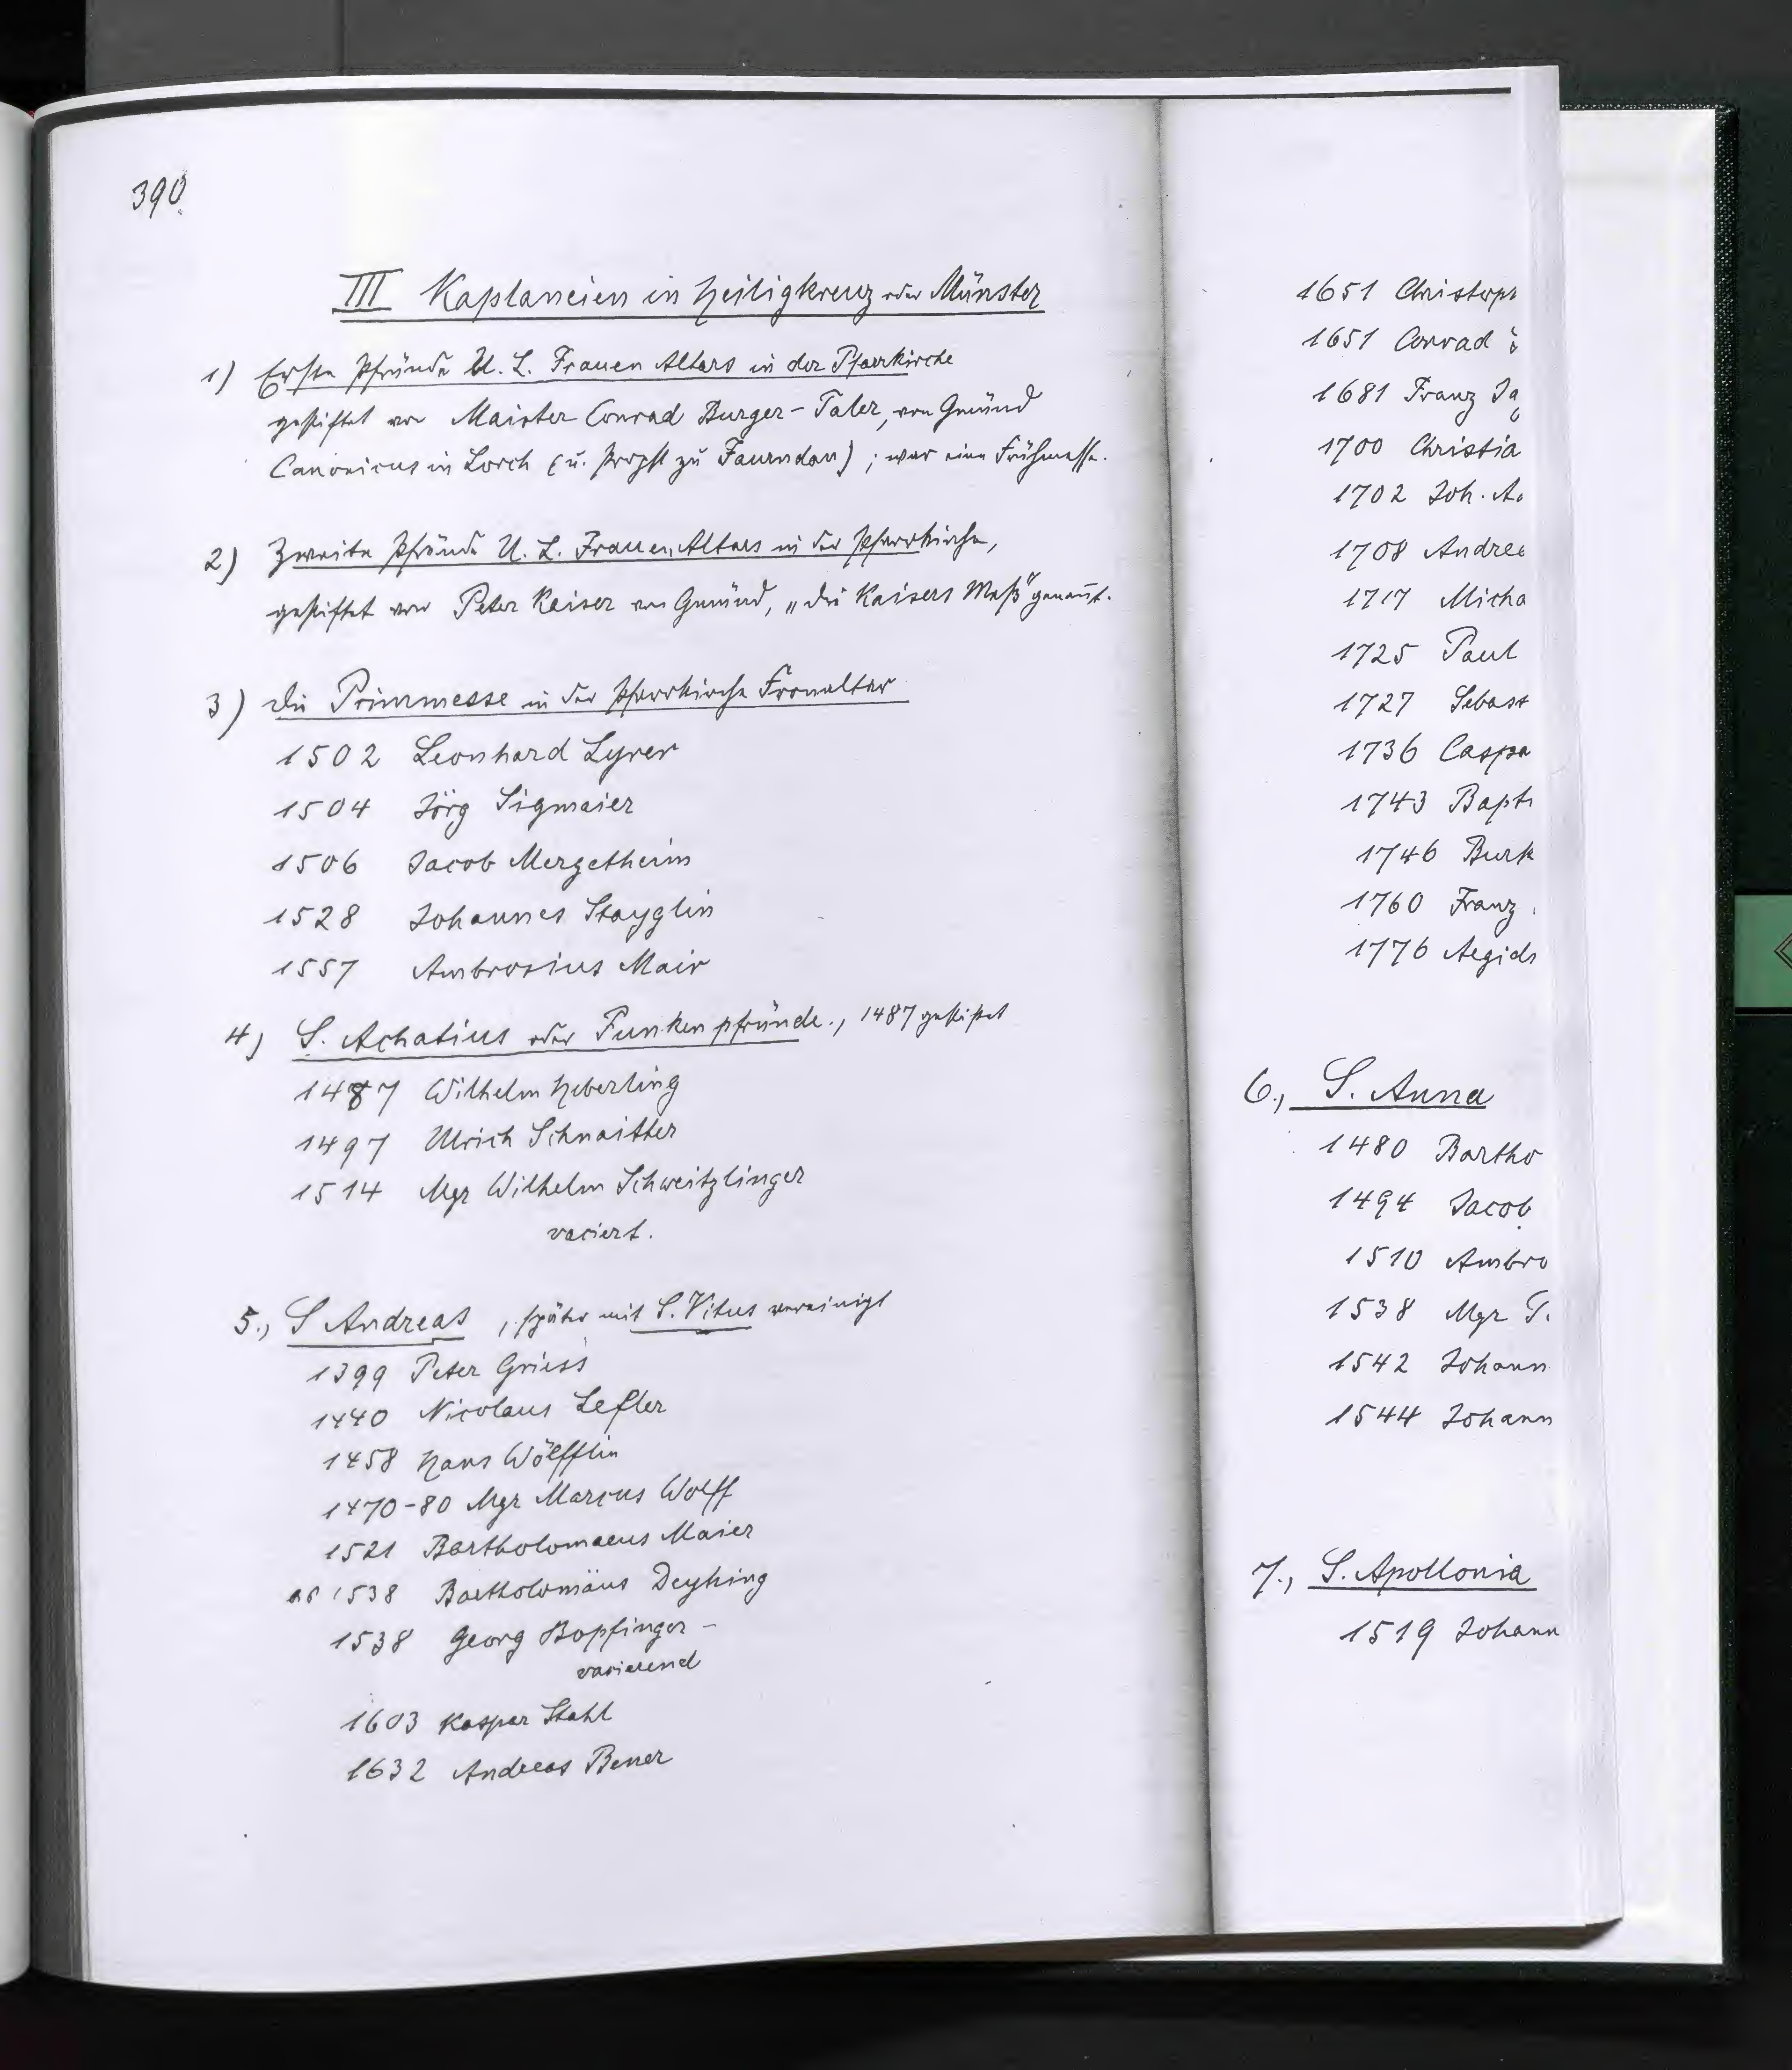 390.
III Kaplaneien in Heiligkreuz oder Münster
1) Erste Pfründe U. L. Frauen Altars in der Pfarrkirche
gestiftet von Maister Conrad Burger-Taler, von Gmünd
Canonicus in Lorch (u. Propst zu Faurndau); war eine Frühmesse.
2) Zweite Pfründe U. L. Frauen Altars in der Pfarrkirche,
gestiftet von Peter Keiser von Gmünd, „die Kaisers Meß" genannt.
3) Die Primmesse in der Pfarrkirche Fronaltar
1502 Leonhard Lyrer
1504 Jörg Sigmaier
1506 Jacob Mergetheim
1528 Johannes Stayglin
1557 Ambrosius Mair
4) S. Achatius oder Funkenpfründe., 1487 gestiftet
1487 Wilhelm Heberling
1497 Ulrich Schnaitter
1514 Mgr Wilhelm Schweitzlinger
vaciert.
5., S Andreas, später mit S. Vitus vereinigt
1399 Peter Griess
1440 Nicolaus Lefler
1458 Hans Wölfflin
1470-80 Mgr Marcus Wolff
1521 Bartholomaeus Maier
1538 Bartholomäus Deyhing
1538 Georg Bopfinger -
vacierend
1603 Kaspar Stahl
1632 Andreas Bener
1651 Christoph
1651 Conrad
1681 Franz Ja
1700 Christia
1702 Joh. A
1708 Andrea
1717 Micha
1725 Paul
1727 Sebast
1736 Caspa
1743 Bapt
1746 Burk
1760 Franz
1776 Aegid
6., S. Anna
1480 Bartho
1494 Jacob
1510 Ambro
1538 Mgr
1542 Johann
1544 Johann
7., S. Apollonia
1519 Johann